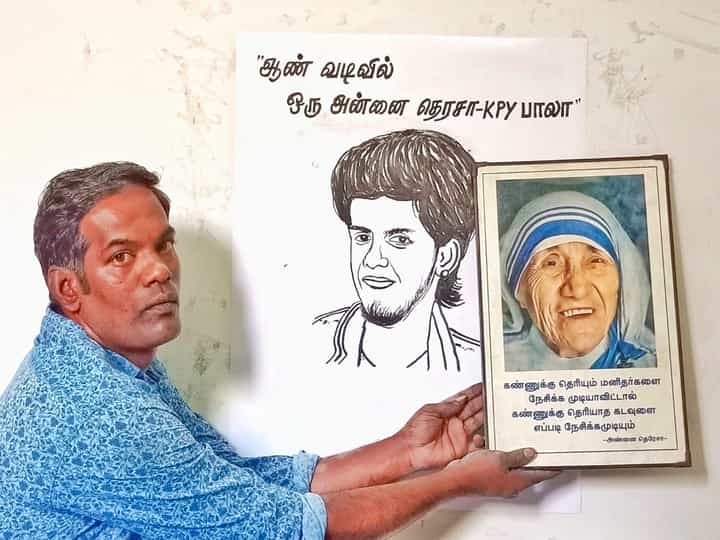 "ஆண் வடிவில்
ஒரு அன்னை தெரசா-KPY பாலா"
கண்ணுக்கு தெரியும் மனிதர்களை
நேசிக்க முடியாவிட்டால்
கண்ணுக்கு தெரியாத கடவுளை
எப்படி நேசிக்கமுடியும்
-அன்னை தெரேசா-